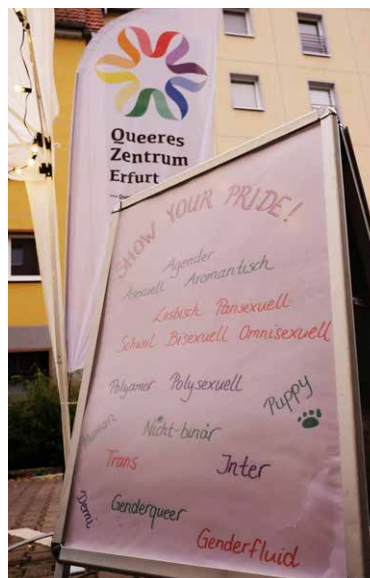 Queeres
Zentrum
Erfurt
SHOW YOUR PRIDE!
Agender
Asexuell Aromantisch
Lesbisch Pansexuell
Schwul Bisexuell Omnisexuell
Polyamor Polysexuell
Puppy
Nicht-binär
Trans
Inter
Demi
Genderqueer
Genderfluid